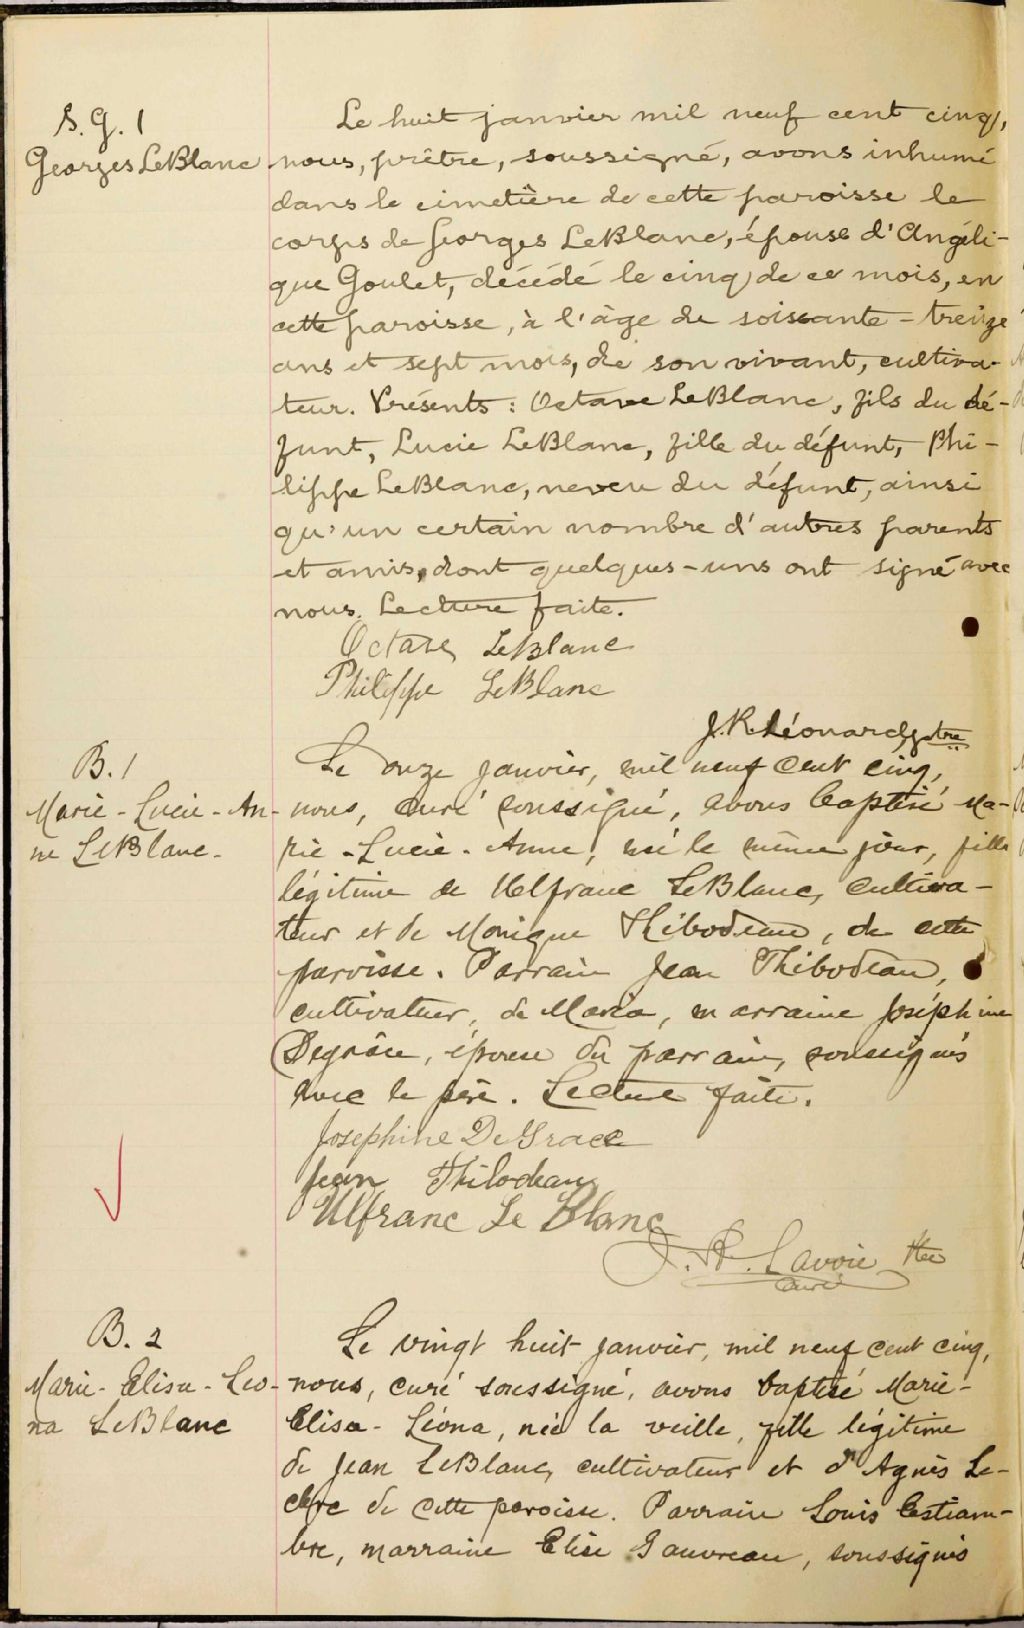 S. G. 1
Georges LeBlanc
Le huit janvier mil neuf cent cinq,
nous, prêtre, soussigné, avons inhumé
dans le cimetière de cette paroisse le
corps de Georges LeBlanc, épouse d'Angéli-
que Goulet, décédé le cinq de ce mois, en
cette paroisse, à l'âge de soissante-treize
ans et sept mois, de son vivant, cultiva-
teur. Présents : Octave LeBlanc, fils du dé-
funt, Lucie LeBlanc, fille du défunt, Phi-
lippe LeBlanc, neveu du défunt, ainsi
qu'un certain nombre d'autres parents
et amis, dont quelques-uns ont signé avec
nous. Lecture faite.
Octave LeBlanc
Philippe LeBlanc
J. R. Léonard, ptre
B. 1
Marie-Lucie-An-
ne LeBlanc.
Le onze janvier, mil neuf cent cinq,
nous, curé soussigné, avons baptisé Ma-
rie-Lucie-Anne, née le même jour, fille
légitime de Ulfranc LeBlanc, cultiva-
teur et de Monique Thibodeau, de cette
paroisse. Parrain Jean Thibodeau,
cultivateur, de Maria, marraine Joséphine
Degrâce, épouse du parrain, soussignés
avec le père. Lecture faite.
Josephine DeGrace
Jean Thibodeau
Ulfranc Le Blanc
J. A. Lavoie Ptre
Curé
B. 2
Marie-Elisa-Leo-
na LeBlanc
Le vingt huit janvier, mil neuf cent cinq,
nous, curé soussigné, avons baptisé Marie-
Elisa-Léona, née la veille, fille légitime
de Jean LeBlanc, cultivateur et d'Agnès Le-
clerc de cette paroisse. Parrain Louis Lestiam-
bre, marraine Elise Gauvreau, soussignés